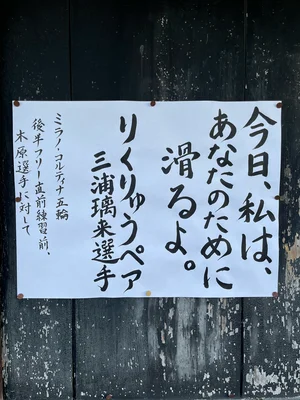 今日、私は、
あなたのために
滑るよ。
りくりゅうペア
三浦璃来選手
ミラノ・コルティナ五輪
後半フリー直前練習前、
木原選手に対して